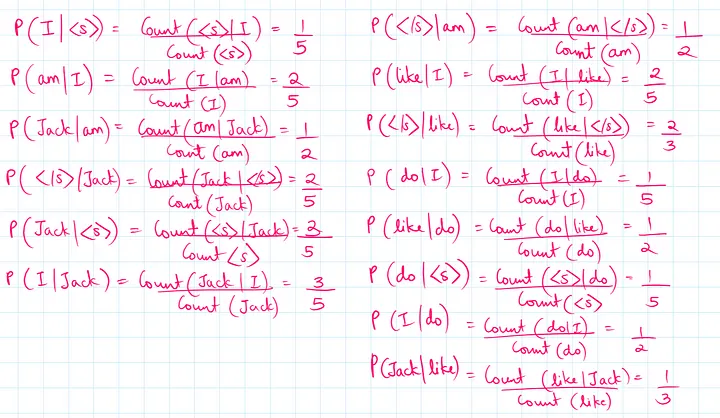 P(I|<s>) = Count(<s>|I) / Count(<s>) = 1/5
P(am|I) = Count(I|am) / Count(I) = 2/5
P(Jack|am) = Count(am|Jack) / Count(am) = 1/2
P(</s>|Jack) = Count(Jack|</s>) / Count(Jack) = 2/5
P(Jack|<s>) = Count(<s>|Jack) / Count(s) = 2/5
P(I|Jack) = Count(Jack|I) / Count(Jack) = 3/5
P(</s>|am) = Count(am|</s>) / Count(am) = 1/2
P(like|I) = Count(I|like) / Count(I) = 2/5
P(</s>|like) = Count(like|</s>) / Count(like) = 2/3
P(do|I) = Count(I|do) / Count(I) = 1/5
P(like|do) = Count(do|like) / Count(do) = 1/2
P(do|<s>) = Count(<s>|do) / Count(<s) = 1/5
P(I|do) = Count(do|I) / Count(do) = 1/2
P(Jack|like) = Count(like|Jack) / Count(like) = 1/3